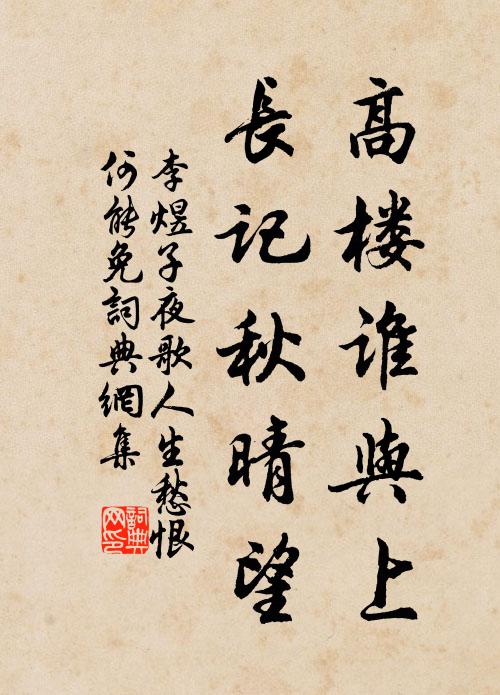 高楼谁與上
長记秋晴望
李煜子夜歌人生愁恨
何能免詞典網集
詞典网印